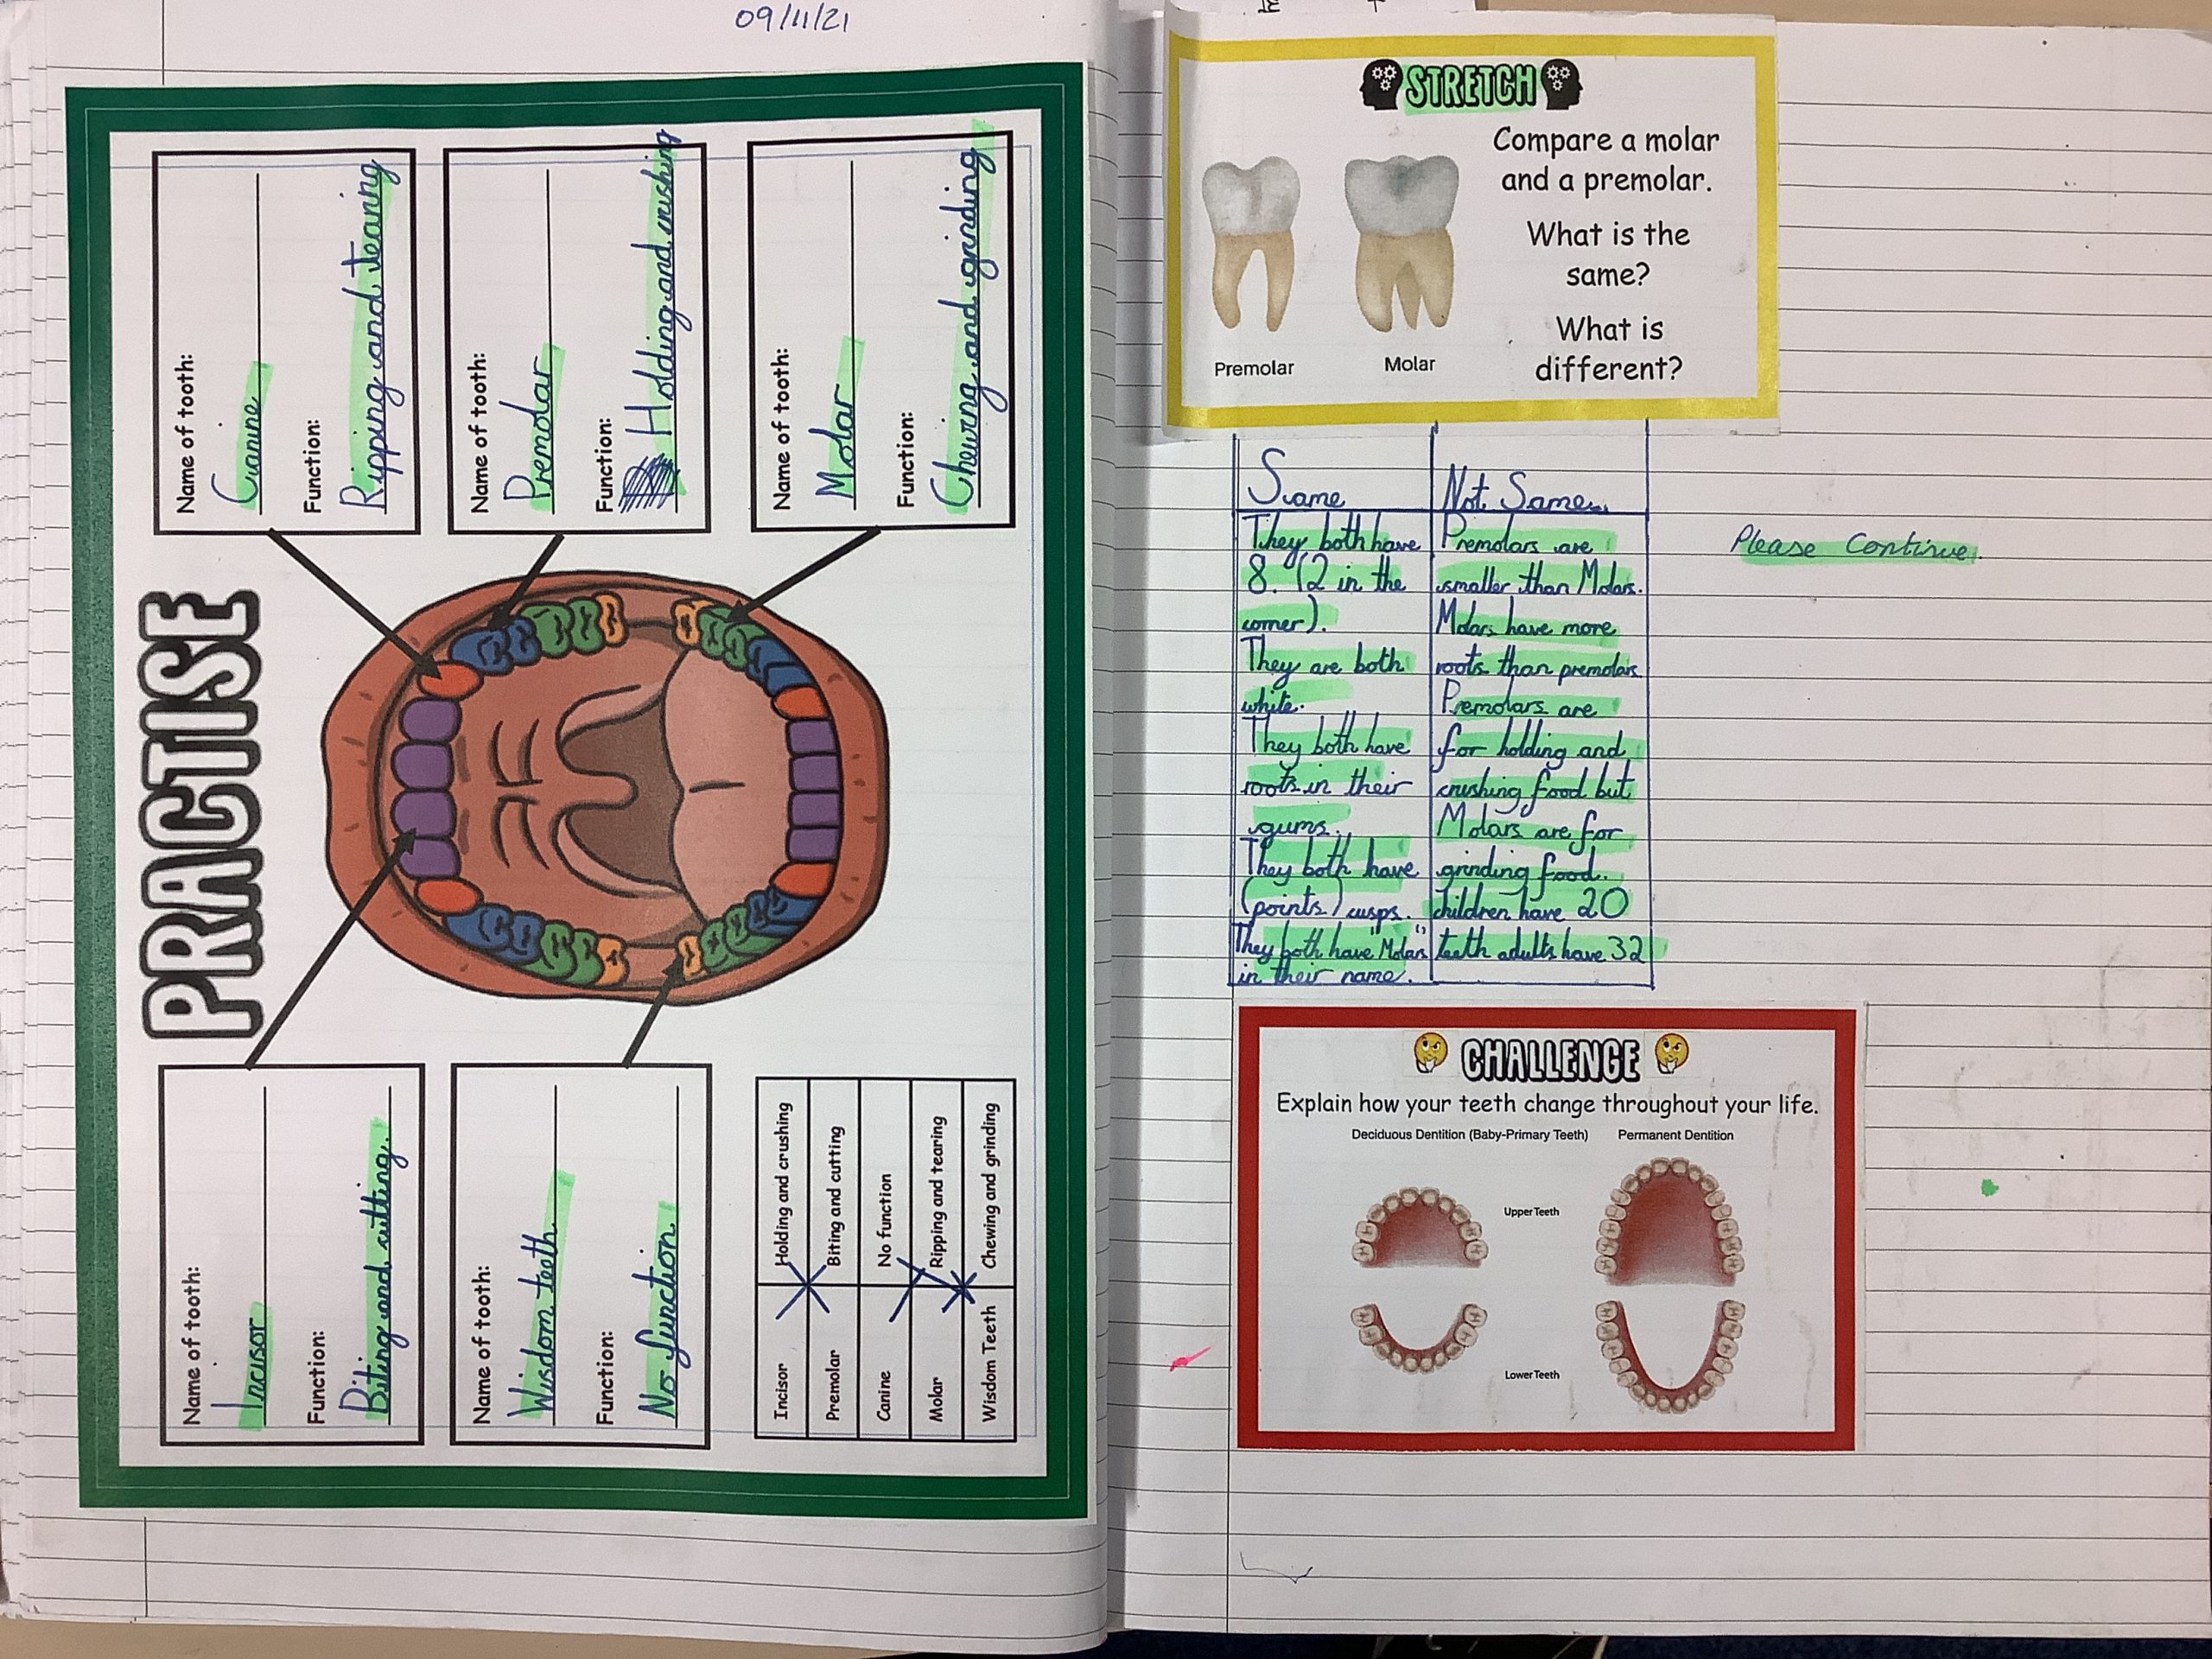 09/11/21
PRACTISE
Name of tooth:
Canine
Function:
Ripping and tearing
Name of tooth:
Premolar
Function:
Holding and crushing
Name of tooth:
Molar
Function:
Chewing and grinding
Name of tooth:
Incisor
Function:
Biting and cutting.
Name of tooth:
Wisdom teeth
Function:
No function
Incisor Holding and crushing
Premolar Biting and cutting
Canine No function
Molar Ripping and tearing
Wisdom Teeth Chewing and grinding
STRETCH
Compare a molar
and a premolar.
What is the
same?
What is
different?
Premolar
Molar
Same
They both have
8. (2 in the
corner).
They are both
white.
They both have
roots in their
gums.
They both have
(points) cusps.
They both have "Molars"
in their name.
Not Same
Premolars are
smaller than Molars.
Molars have more
roots than premolars
Premolars are
for holding and
crushing food but
Molars are for
grinding food.
children have 20
teeth adults have 32
Please Continue.
CHALLENGE
Explain how your teeth change throughout your life.
Deciduous Dentition (Baby-Primary Teeth) Permanent Dentition
Upper Teeth
Lower Teeth